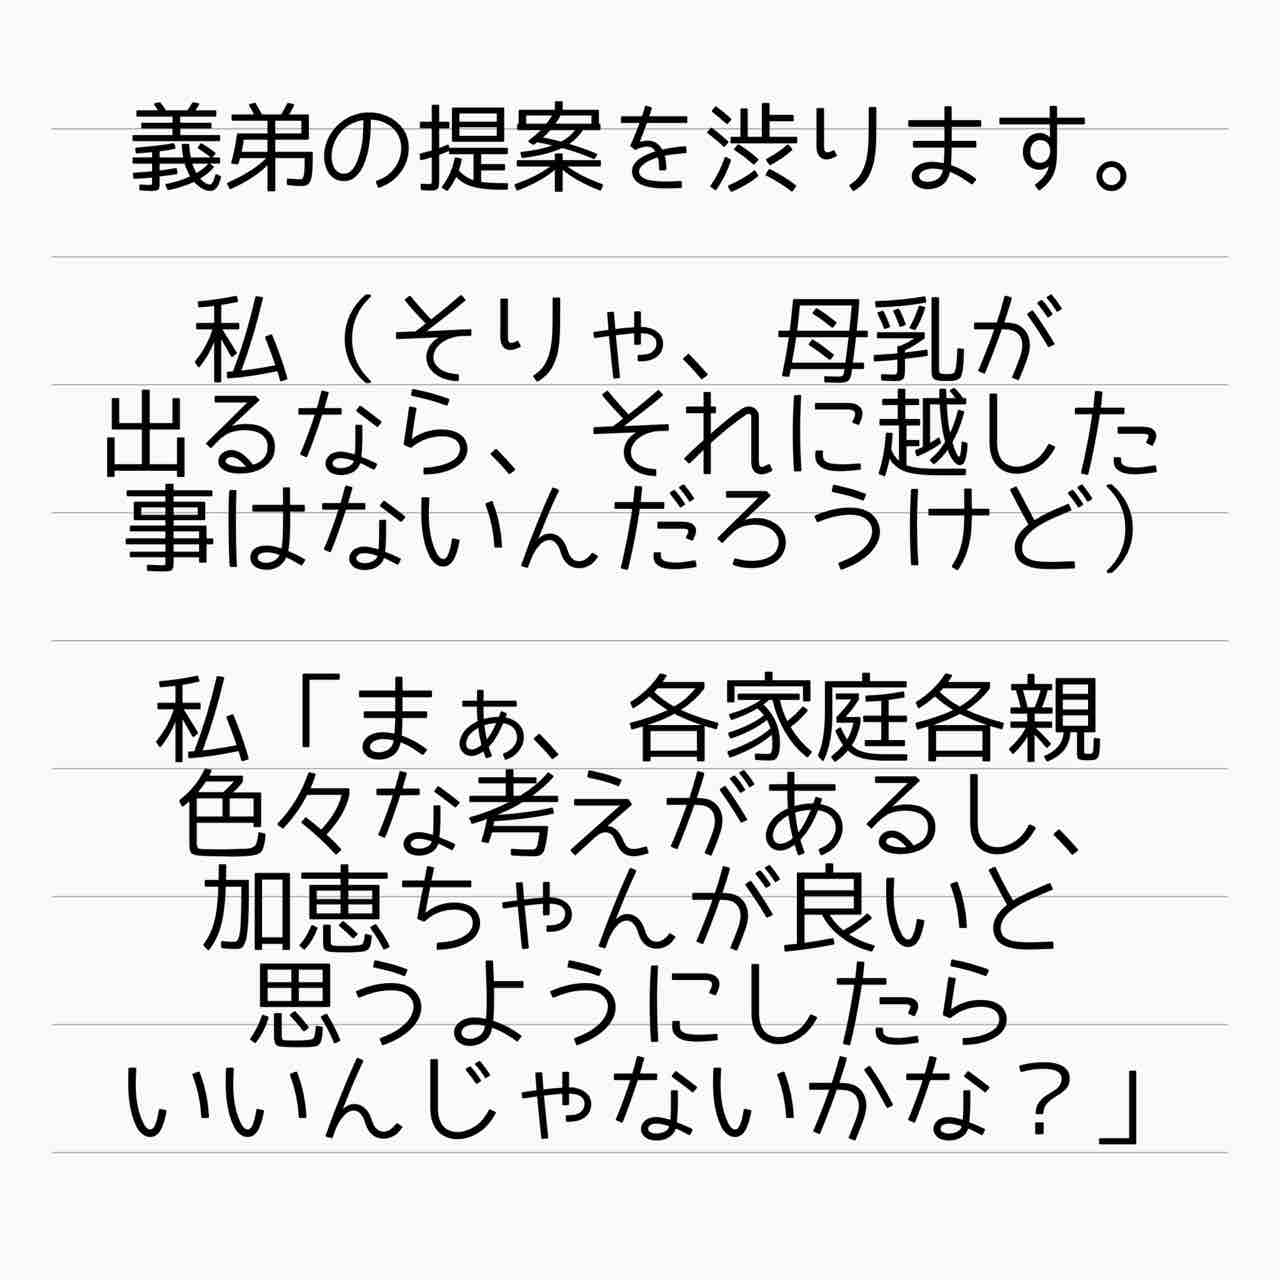 義弟の提案を渋ります。
私（そりゃ、母乳が
出るなら、それに越した
事はないんだろうけど）
私「まぁ、各家庭各親
色々な考えがあるし、
加恵ちゃんが良いと
思うようにしたら
いいんじゃないかな？」